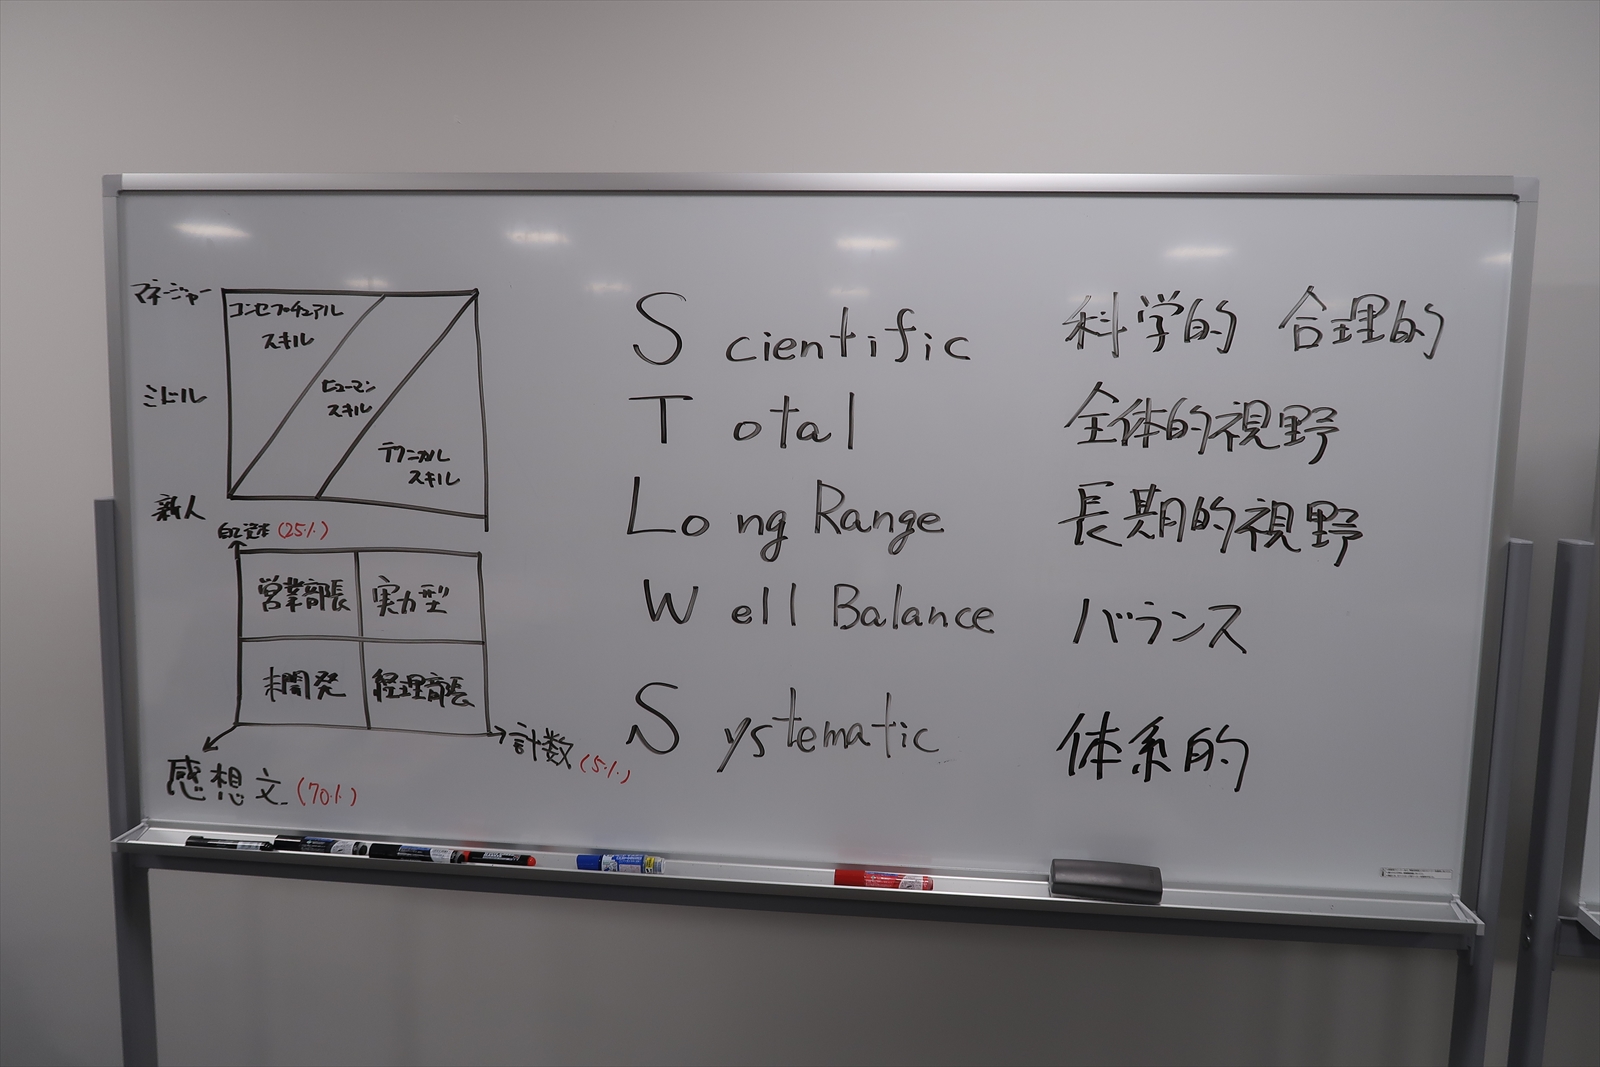 マネージャー
コンセプチュアル
スキル
ミドル
ヒューマン
スキル
テクニカル
スキル
新人
自己資本 (25%)
営業部長 実力型
未開発 経理部長
計数 (5%)
感想文 (70%)
Scientific 科学的 合理的
Total 全体的視野
Long Range 長期的視野
Well Balance バランス
Systematic 体系的